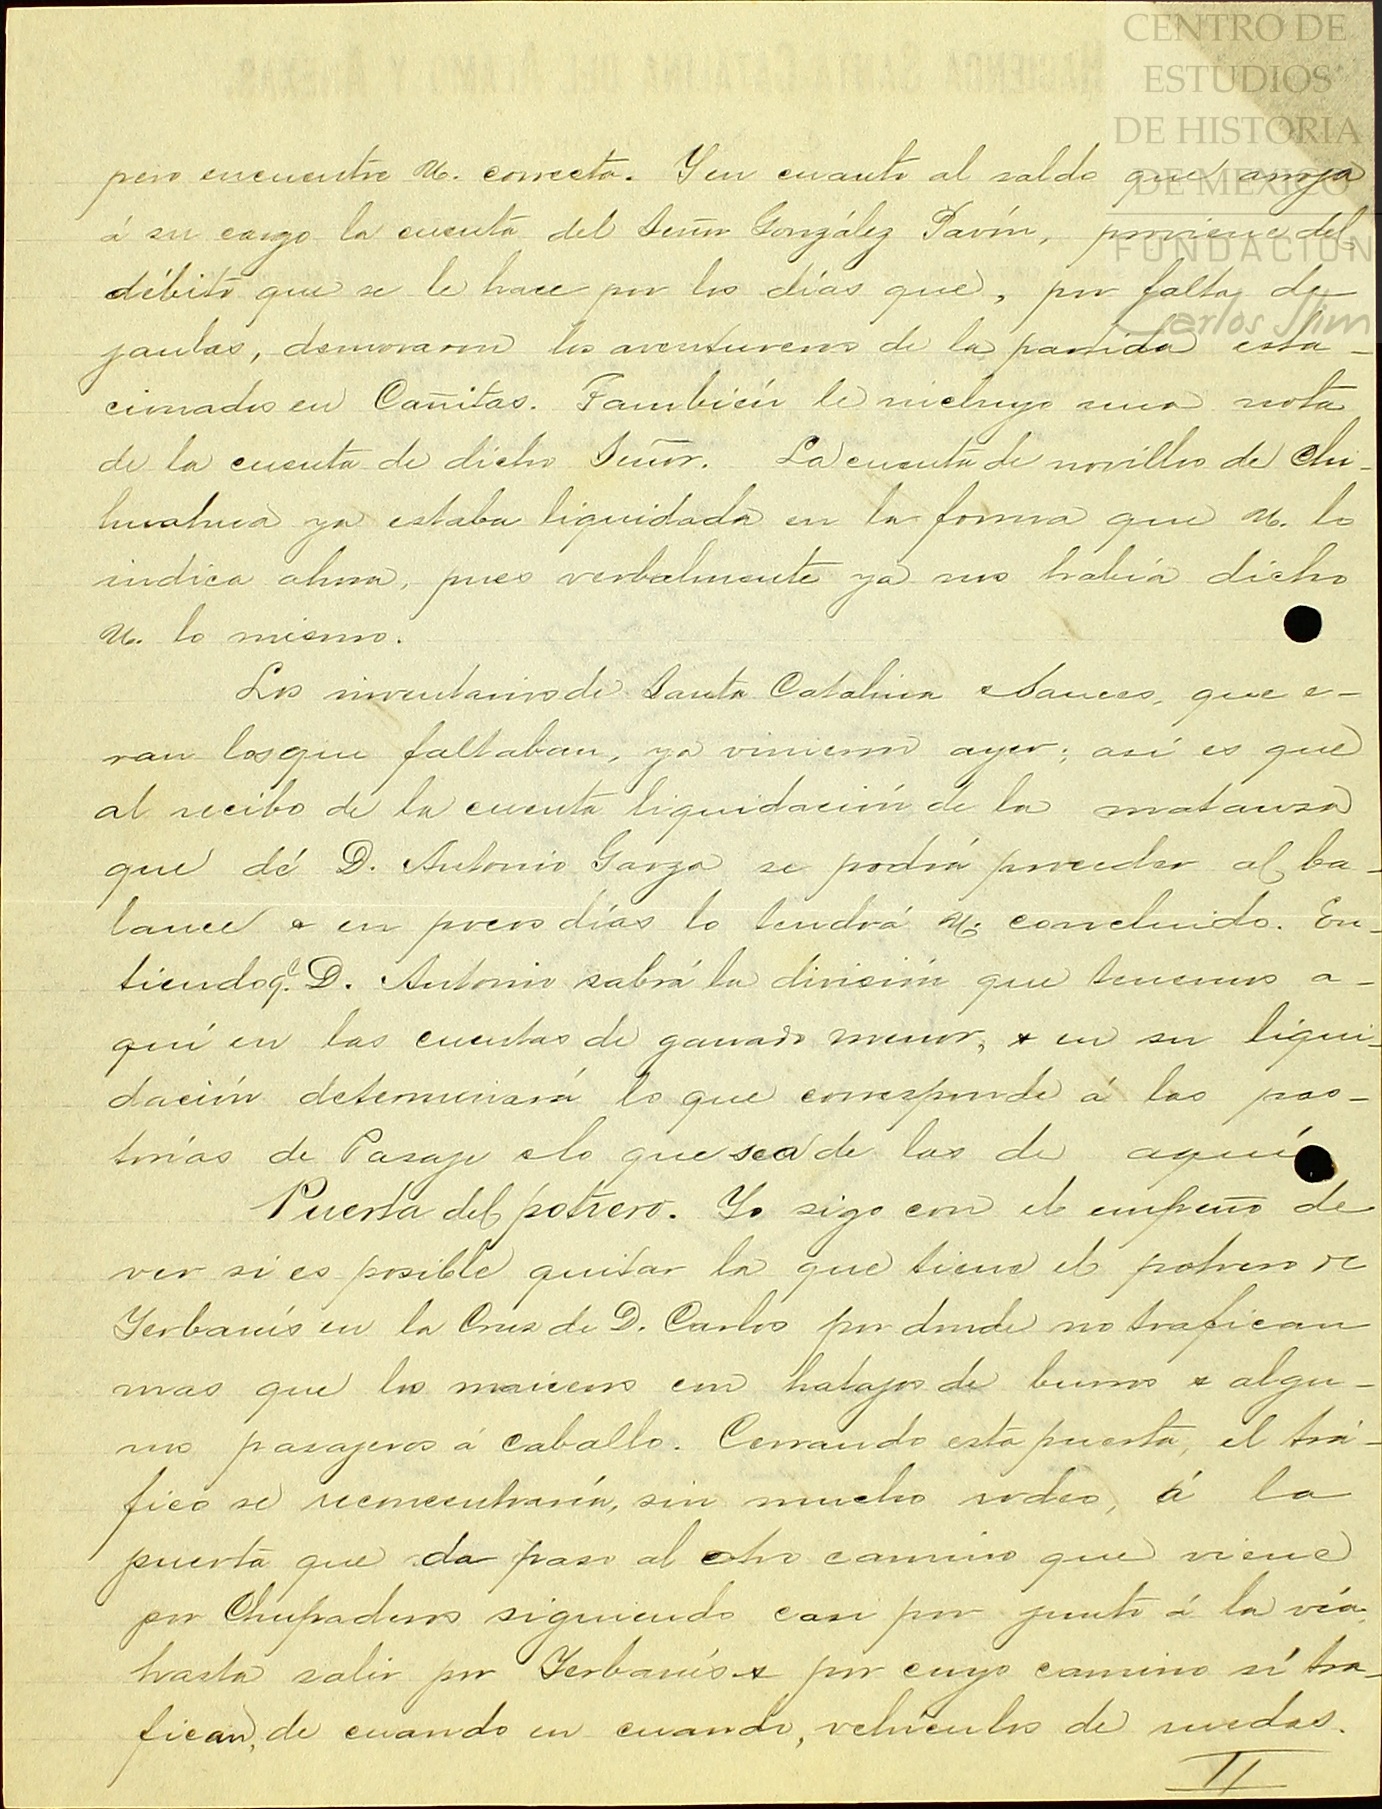 CENTRO DE
ESTUDIOS
DE HISTORIA
DE MEXICO
FUNDACIÓN
Carlos Slim
pero encuentre U. correcta. Y en cuanto al saldo que arroja
á su cargo la cuenta del Señor González Pavón, proviene del
débito que se le hace por los días que, por falta de
jaulas, demoraron los aventureros de la partida esta-
cionados en Cañitas. También le incluyo una nota
de la cuenta de dicho Señor. La cuenta de novillos de Chi-
huahua ya estaba liquidada en la forma que U. lo
indica ahora, pues verbalmente ya nos había dicho
U. lo mismo.
Los inventarios de Santa Catalina & Sauces, que e-
ran los que faltaban, ya vinieron ayer; así es que
al recibo de la cuenta liquidación de la matanza
que dé D. Antonio Garza se podrá proceder al ba-
lance & en pocos días lo tendrá U. concluido. En-
tiendo q.e D. Antonio sabrá la división que tenemos a-
quí en las cuentas de ganado menor, & en su liqui-
dación determinará lo que corresponde á las pas-
torías de Pasaje & lo que sea de las de aquí
Puerta del potrero. Yo sigo con el empeño de
ver si es posible quitar la que tiene el potrero de
Yerbanís en la Cruz de D. Carlos por donde no trafican
mas que los maiceros con hatajos de burros & algu-
nos pasajeros á caballo. Cerrando esta puerta, el trá-
fico se reconcentraría, sin mucho rodeo, á la
puerta que da paso al otro camino que viene
por Chupaderos siguiendo casi por junto á la vía,
hasta salir por Yerbanís & por cuyo camino sí tra-
fican, de cuando en cuando, vehículos de ruedas.
II